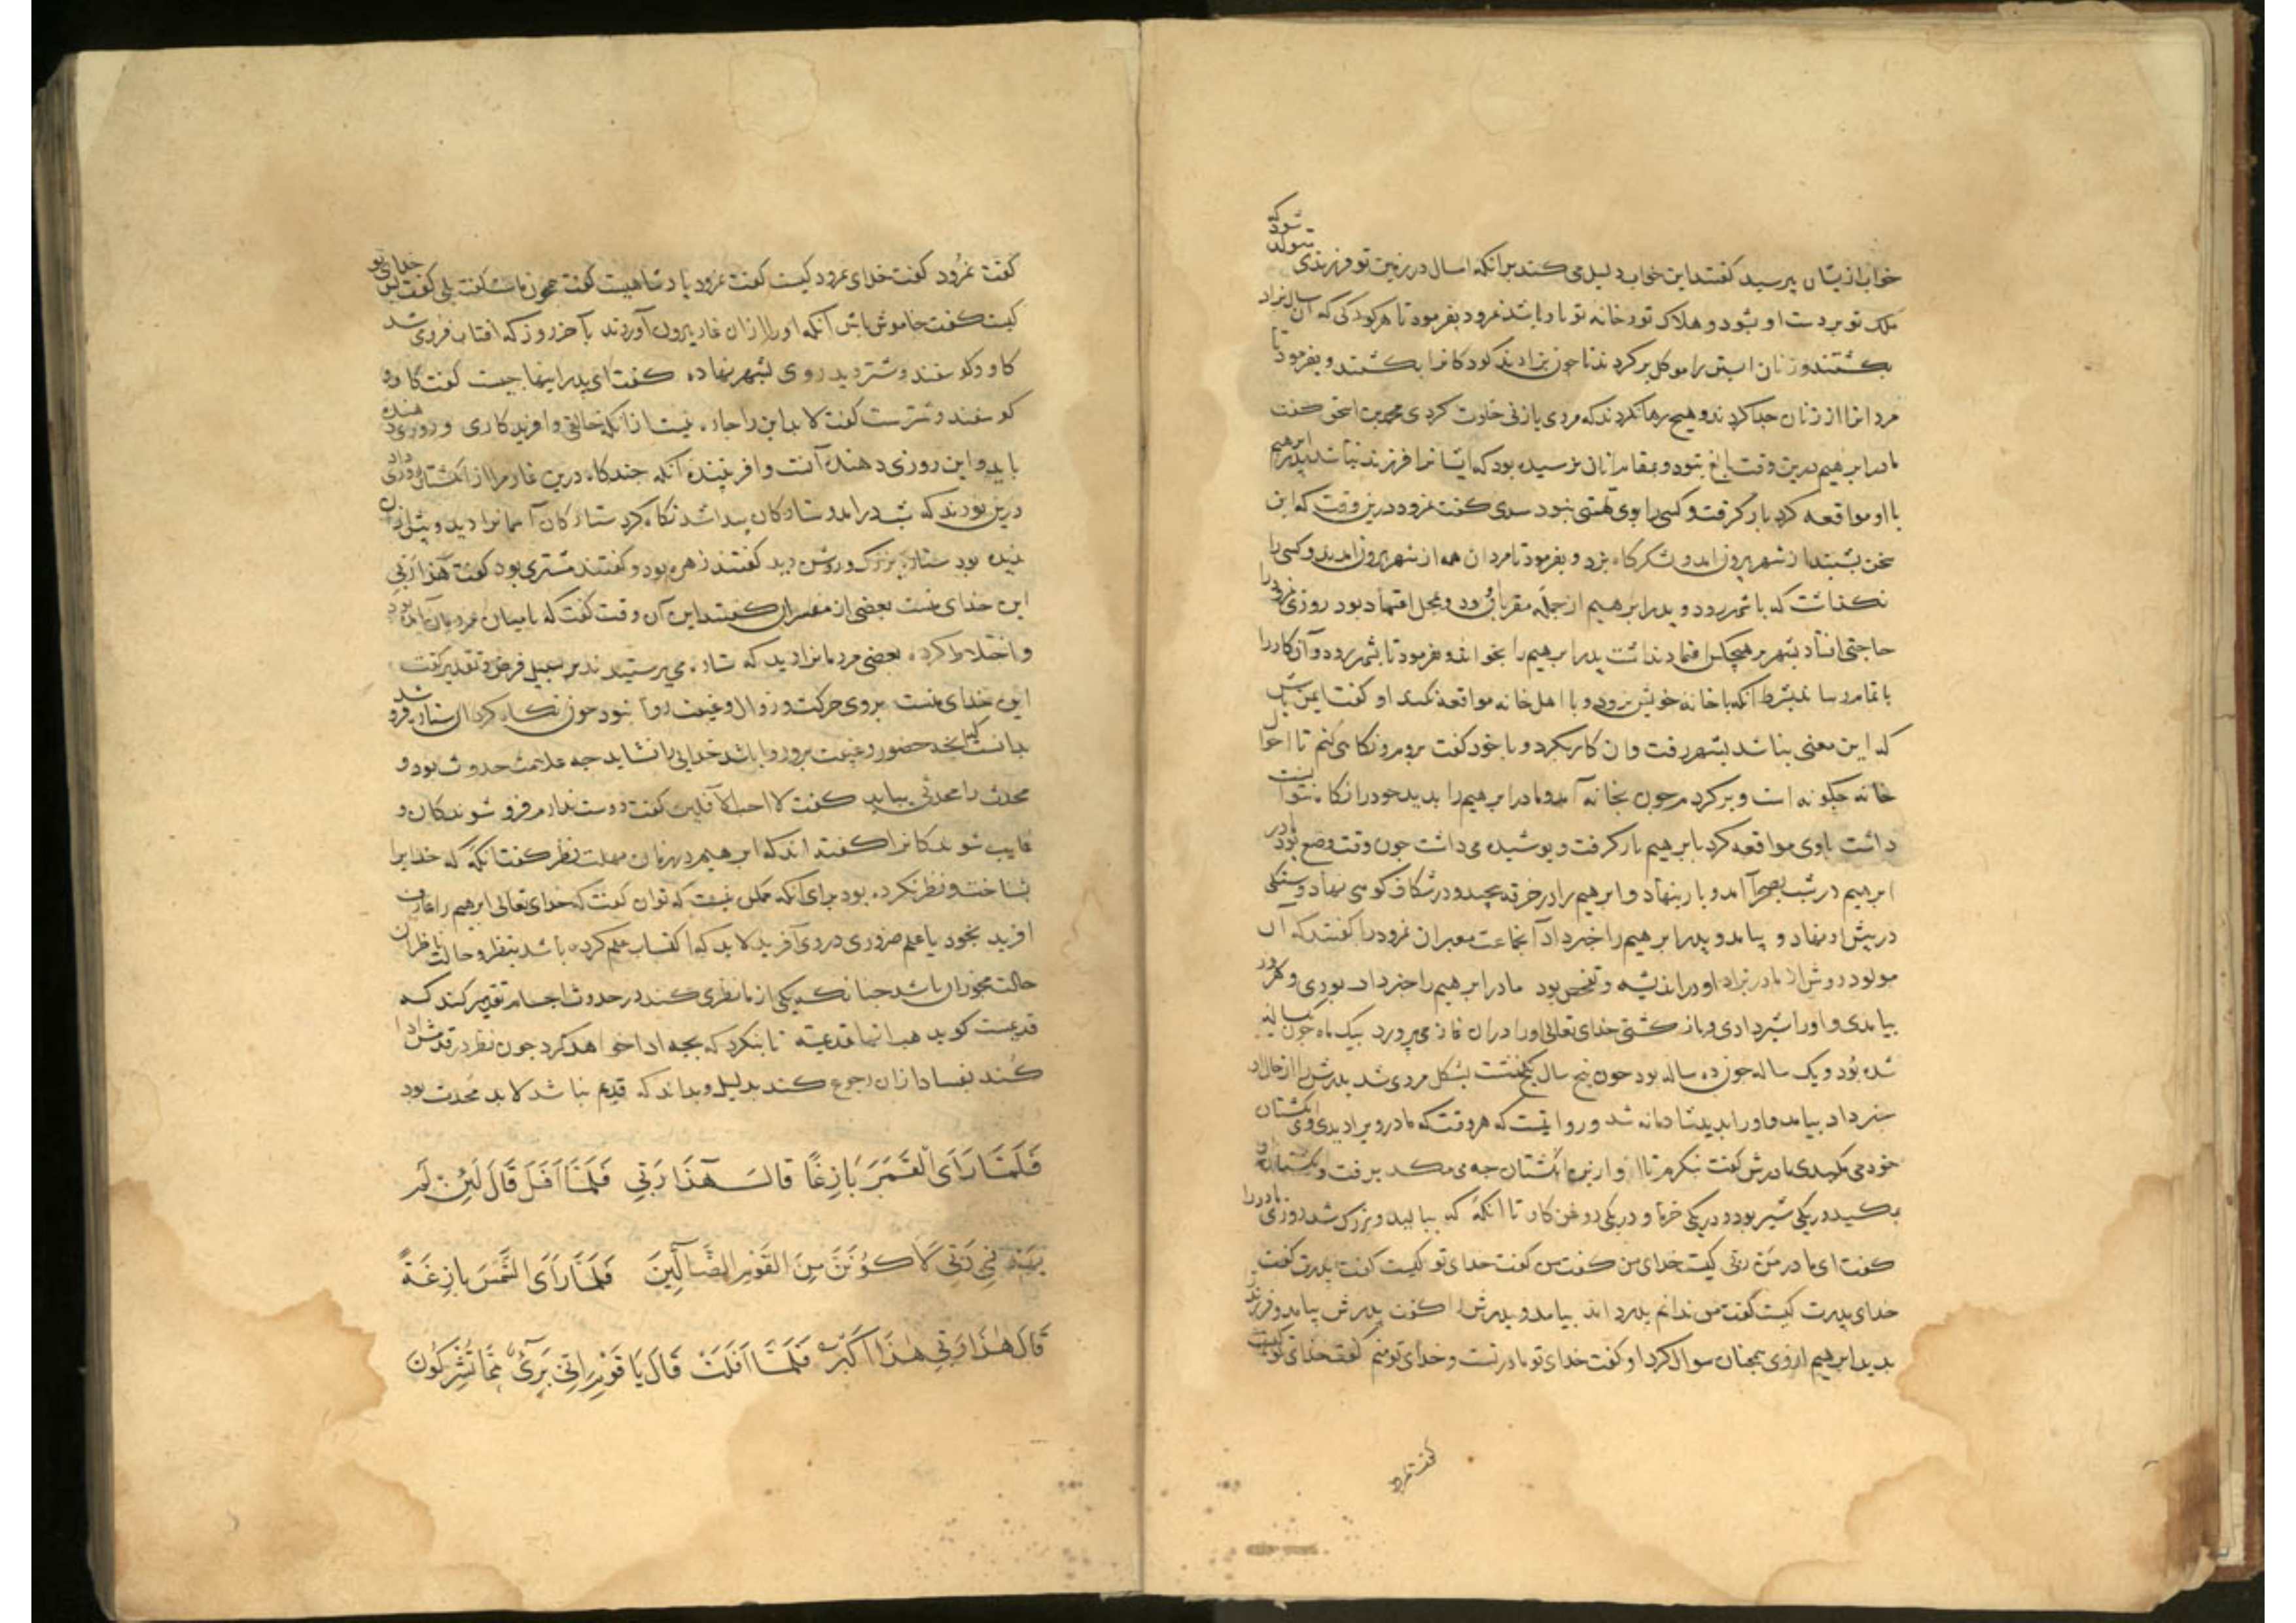 خواب ازیشان پرسید گفتند این خواب دلیل می کند برانکه امسال در زمین تو فرزندی متولد شود که
ملک تو بر دست او بشود و هلاک تو و خانه تو باو باشد نمرود بفرمود تا هر کودکی که آن سال بزاد
بکشتند و زنان ابستن را موکل بر کردند تا جون بزادند کودکانرا بکشتند و بفرمود تا
مردانرا از زنان جدا کردند و هیچ رها نکردند که مردی با زنی خلوت کردی محمد بن اسحق گفت
مادر ابرهیم درین وقت بالغ نبود و بمقام زنان نرسیده بود که ایشانرا فرزند نباشد پدر ابرهیم
با او مواقعه کرد بار گرفت و کسی را بوی تهمتی نبود سدی گفت نمرود درین وقت که این
سخن بشنید از شهر بیرون امد و لشکرگاه بزد و بفرمود تا مردان همه از شهر بیرون امدند و کسی را
نگذاشت که با شهر رود و پدر ابرهیم از جمله مقربان بود و محل اعتماد بود روزی نمرود را
حاجتی افتاد بشهر بر هیچکس اعتماد نداشت پدر ابرهیم را بخواند و بفرمود تا بشهر رود و آن کار را
باتمام رساند بشرط آنکه با خانه خویش نرود و با اهل خانه مواقعه نکند او گفت ایمن باش
که این معنی نباشد بشهر رفت و ان کار بکرد و با خود گفت بروم و نگاهی کنم تا احوال
خانه جگونه است و برگردم جون بخانه آمد و مادر ابرهیم را بدید خود را نگاه نتوانست
داشت باوی مواقعه کرد بابرهیم بار گرفت و پوشیده می داشت جون وقت وضع بود مادر
ابرهیم در شب بصحرا آمد و بار بنهاد و ابرهیم را در خرقه پیجید و در شکاف کوهی نهاد و سنگی
در پیش او نهاد و بیامد و پدر ابرهیم را خبر داد آنجماعت معبران نمرود را گفتند که آن
مولود دوش از مادر بزاد او در اندیشه و تفحص بود مادر ابرهیم را خبر داد بودی و هر روز
بیامدی و او را شیر دادی و باز گشتی خدای تعالی او را دران غار می پرورد بیک ماه جون یکساله
شده بود و یک ساله جون ده ساله بود جون پنج سال بگذشت بشکل مردی شد پدرش را از حال او
خبر داد بیامد و او را بدید شادمانه شد و روایتست که هر وقت که مادر ویرا دیدی وی انگشتان
خود می مکیدی مادرش گفت بنگرم تا او ازین انگشتان جه می مکد برفت و انگشتان وی
بمکید در یکی شیر بود و در یکی خرما و در یکی روغن گاو تا آنگه که ببالید و بزرگ شد روزی مادر را
گفت ای مادر من ربی کیست خدای من گفت من گفت خدای تو کیست گفت پدرت گفت
خدای پدرت کیست گفت من ندانم پدرت داند بیامد و پدرش را گفت پدرش بیامد و فرزند
بدید ابرهیم ازوی همجنان سوال کرد او گفت خدای تو مادر تست و خدای تو منم گفت خدای تو کیست
گفت نمرود
گفت نمرود گفت خدای نمرود کیست گفت نمرود پادشاهیست گفت همجون ماست گفت بلی گفت پس خدای تو
کیست گفت خاموش باش آنگه او را از ان غار بیرون آوردند بآخر روز که افتاب فروی شد
گاو و گوسفند و شتر دید روی بشهر نهاده گفت ای پدر اینها جیست گفت گاو و
گوسفند و شترست گفت لابد این را جاره نیست از انکه خالقی و افریدگاری و روزی دهنده
باید و این روزی دهنده آنست و افریننده آنکه جندگاه درین غار مرا از انگشتان روزی داد
درین بودند که شب درامد و ستارگان پیدا شد نگاه کرد ستارگان آسمانرا دید و پیش ازان
ندیده بود ستاره بزرگ و روشن دید گفتند زهره بود و گفتند مشتری بود گفت هذا ربی
این خدای منست بعضی از مفسران گفتند این آن وقت گفت که بامیان مردمان آمده بود
و اختلاط کرده بعضی مردمانرا دید که ستاره می پرستیدند بر سبیل فرض و تقدیر گفت
این خدای منست بروی حرکت و زوال و غیبت روا نبود جون نگاه کرد ان ستاره فرو شد
بدانست که انجه حضور و غیبت برو روا باشد خدایی را نشاید جه علامت حدوث بود و
محدث را محدثی بباید گفت لا احب الآفلین گفت دوست ندارم فرو شوندگان و
غایب شوندگانرا گفته اند که ابرهیم در زمان مهلت نظر گفت آنگه که خدایرا
بشناخته و نظر نکرده بود برای آنکه ممکن نیست که توان گفت که خدای تعالی ابرهیم را عارف
افرید بخود یا علم ضروری در وی آفرید لابد که اکتساب علم کرده باشد بنظر و حالت ناظران
حالت مجوزان باشد جنانکه یکی از ما نظری کند در حدوث اجسام تقدیر کند که
قدیمست گوید هب انها قدیمة تا بنگرد که بجه ادا خواهد کرد جون نظر در قدمش ادا
کند بفساد ازان رجوع کند بدلیل و بداند که قدیم نباشد لابد محدث بود
فَلَمَّا رَاَی القَمَرَ بَازِغًا قالَ هٰذَا رَبِّی فَلَمَّا اَفَلَ قَالَ لَئِن لَم
یَهدِنِی رَبِّی لَاَکُونَنَّ مِنَ القَومِ الضَّالِّینَ فَلَمَّا رَاَی الشَّمسَ بازِغَةً
قَالَ هٰذَا رَبِّی هٰذَا اَکبَرُ فَلَمَّا اَفَلَت قَالَ یَا قَومِ اِنِّی بَرِیٌٔ مِمَّا تُشرِکُونَ